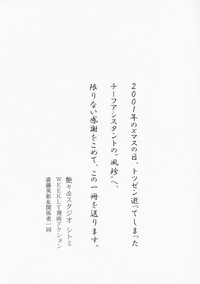 2001年のXマスの日、トツゼン逝ってしまった
チーフアシスタントの“風紗”へ、
限りない感謝をこめて、この一冊を送ります。
艶々&スタジオ・シトミ
WEEKLY漫画アクション
斎藤英彰&関係者一同